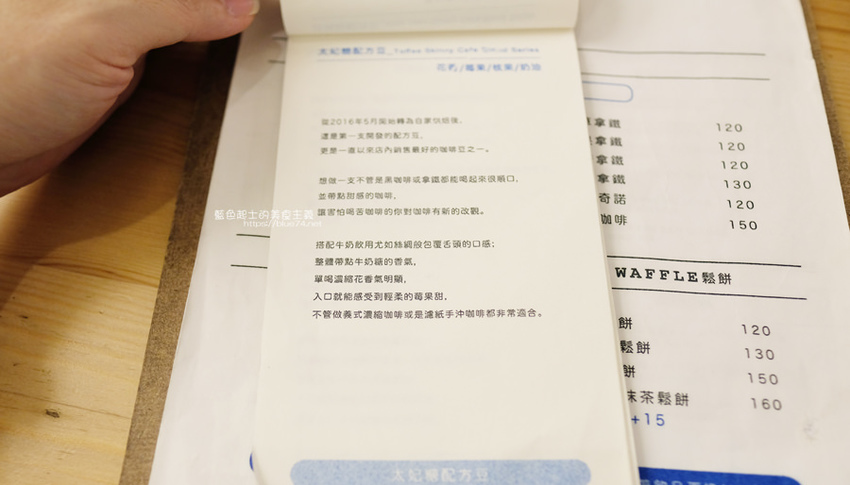 太妃糖配方豆_Toffee Skinny Cafe Series
花香/莓果/核果/奶油
從2016年5月開始轉為自家烘焙後,
這是第一支開發的配方豆,
更是一直以來店內銷售最好的咖啡豆之一。
想做一支不管是黑咖啡或拿鐵都能喝起來很順口,
並帶點甜感的咖啡,
讓害怕喝苦咖啡的你對咖啡有新的改觀。
搭配牛奶飲用尤如絲綢般包覆舌頭的口感;
整體帶點牛奶糖的香氣,
單喝濃縮花香氣明顯,
入口就能感受到輕柔的莓果甜,
不管做義式濃縮咖啡或是濾紙手沖咖啡都非常適合。
太妃糖配方豆
藍色起士的美食主義
https://blue74.net
拿鐵 120
拿鐵 120
拿鐵 120
拿鐵 130
奇諾 120
咖啡 150
WAFFLE鬆餅
餅 120
鬆餅 130
餅 150
抹茶鬆餅 160
+15